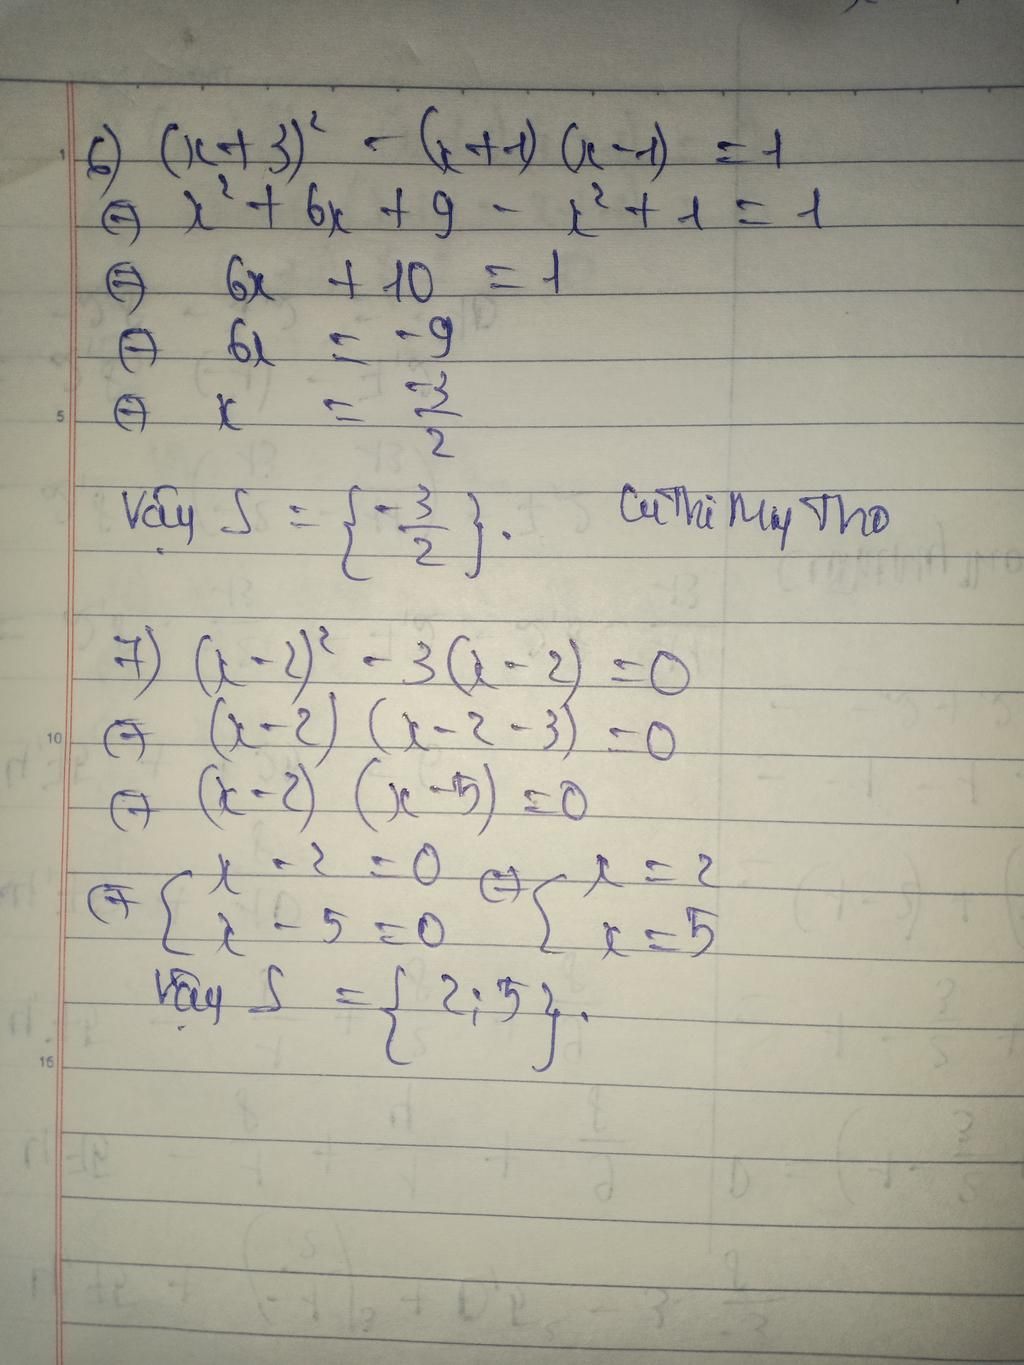 6) (x+3)² - (x+1) (x-1) = 1
⇔ x² + 6x + 9 - x² + 1 = 1
⇔ 6x + 10 = 1
⇔ 6x = -9
⇔ x = -3/2
Vậy S = {-3/2}. CuThiMyTho
7) (x-2)² - 3(x-2) = 0
⇔ (x-2) (x-2-3) = 0
⇔ (x-2) (x-5) = 0
⇔ { x - 2 = 0 ⇔ { x = 2
x - 5 = 0 x = 5
Vậy S = {2;5}.
1
5
10
15